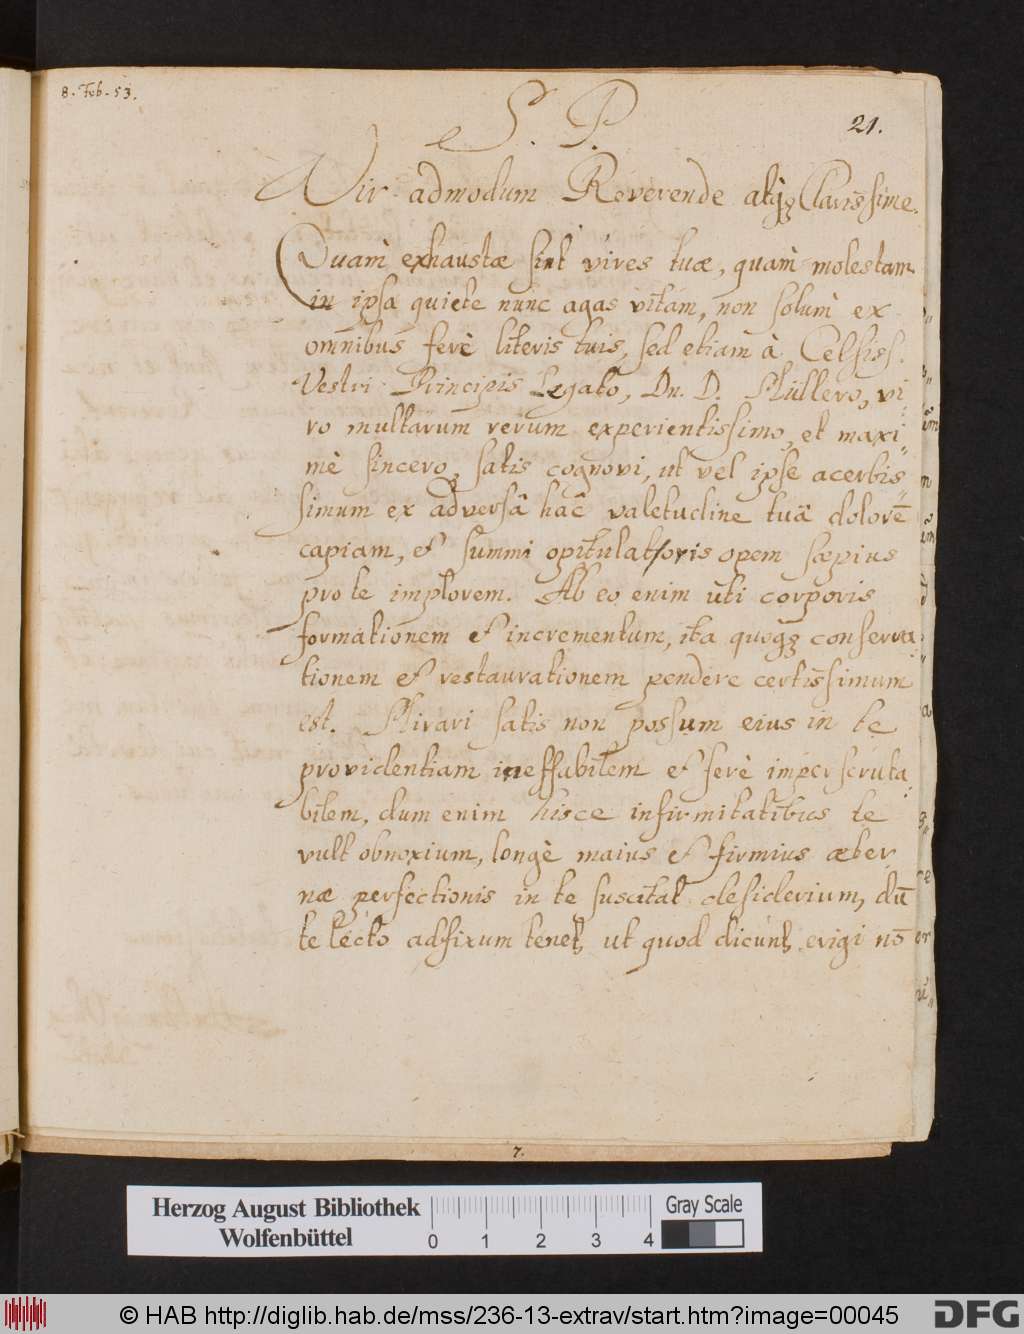 8. Feb. 53.
S. P.
21.
Vir admodum Reverende atq; Clarissime.
Quàm exhaustæ sint vires tuæ, quàm molestam
in ipsa quiete nunc agas vitam, non solum ex
omnibus ferè literis tuis, sed etiam à Celsiss.
Vestri Principis Legato, Dn. D. Müllero, vi
ro multarum rerum experientissimo, et maxi
mè sincero, satis cognovi, ut vel ipse acerbis
simum ex adversâ hac valetudine tuâ dolorē
capiam, et summi opitulatoris opem sæpius
pro te implorem. Ab eo enim uti corporis
formationem et incrementum, ita quoq; conserva
tionem et restaurationem pendere certissimum
est. Mirari satis non possum eius in te
providentiam ineffabilem et ferè imperscruta
bilem, dum enim hisce infirmitatibus te
vult obnoxium, longè maius et firmius æter
næ perfectionis in te suscitat desiderium, dū
te lecto adfixum tenet, ut quod dicunt, erigi nō
7.
Herzog August Bibliothek
Wolfenbüttel
0 1 2 3 4
Gray Scale
© HAB http://diglib.hab.de/mss/236-13-extrav/start.htm?image=00045
DFG